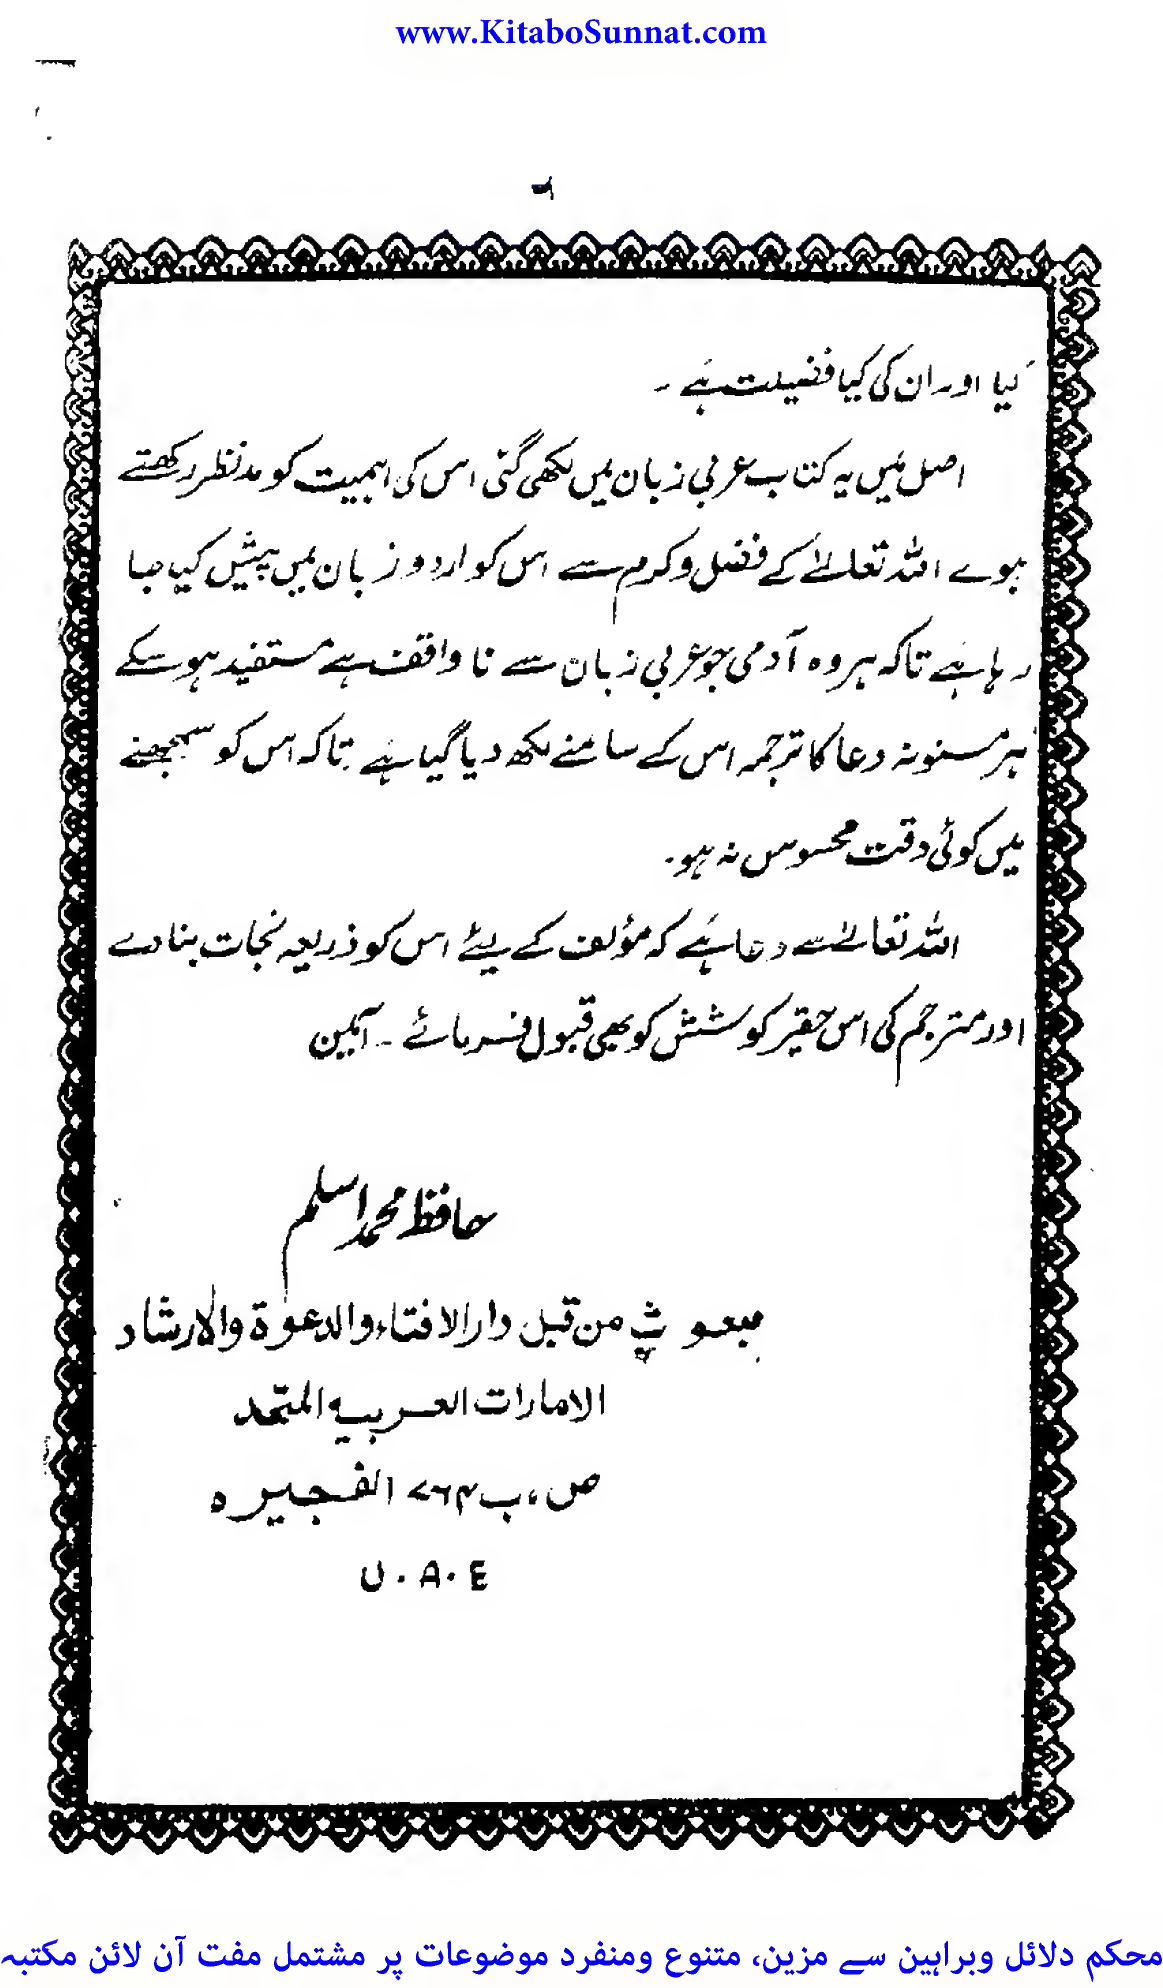 www.KitaboSunnat.com
٦
کیا اور ان کی کیا فضیلت ہے ۔
اصل میں یہ کتاب عربی زبان میں لکھی گئی اس کی اہمیت کو مدنظر رکھتے
ہوے اللہ تعالےٰ کے فضل وکرم سے اس کو اردو زبان میں پیش کیا جا
رہا ہے تاکہ ہر وہ آدمی جو عربی زبان سے نا واقف ہے مستفید ہو سکے
ہر مسنونہ دعا کا ترجمہ اس کے سامنے لکھ دیا گیا ہے تاکہ اس کو سمجھنے
میں کوئی دقت محسوس نہ ہو۔
اللہ تعالےٰ سے دعا ہے کہ مؤلف کے لیئے اس کو ذریعہ نجات بنا دے
اور مترجم کی اس حقیر کوشش کو بھی قبول فرمائے ۔ آمین
حافظ محمد اسلم
مبعوث من قبل دار الافتاء والدعوة والارشاد
الامارات العربيه المتحد
ص، ب ۷۶۴ الفجيره
U.A.E
محکم دلائل وبراہین سے مزین، متنوع ومنفرد موضوعات پر مشتمل مفت آن لائن مکتبہ